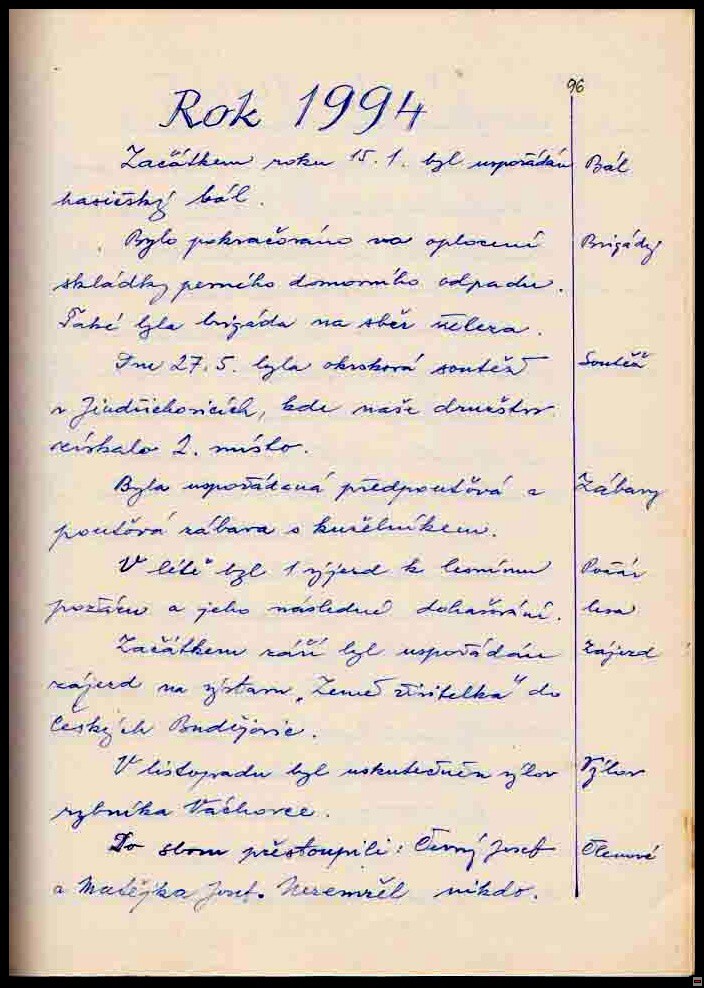 96
Rok 1994
Začátkem roku 15.1. byl uspořádán Bál
hasičský bál.
Bylo pokračováno va oplocení Brigády
skládky pevného domovního odpadu.
Také byla brigáda na sběr železa.
Dne 27.5. byla okrsková soutěž Soutěž
v Jindřichovicích, kde naše družstvo
získalo 2. místo.
Byla uspořádaná předpouťová a Zábavy
pouťová zábava s kuželníkem.
V létě byl 1 výjezd k lesnímu Požár
požáru a jeho následné dohašování. lesa
Začátkem září byl uspořádán Zájezd
zájezd na výstavu "Země živitelka" do
Českých Budějovic.
V listopadu byl uskutečněn výlov Výlov
rybníka Váchovce.
Do sboru přestoupili: Černý Josef Členové
a Matějka Josef. Nezemřel nikdo.